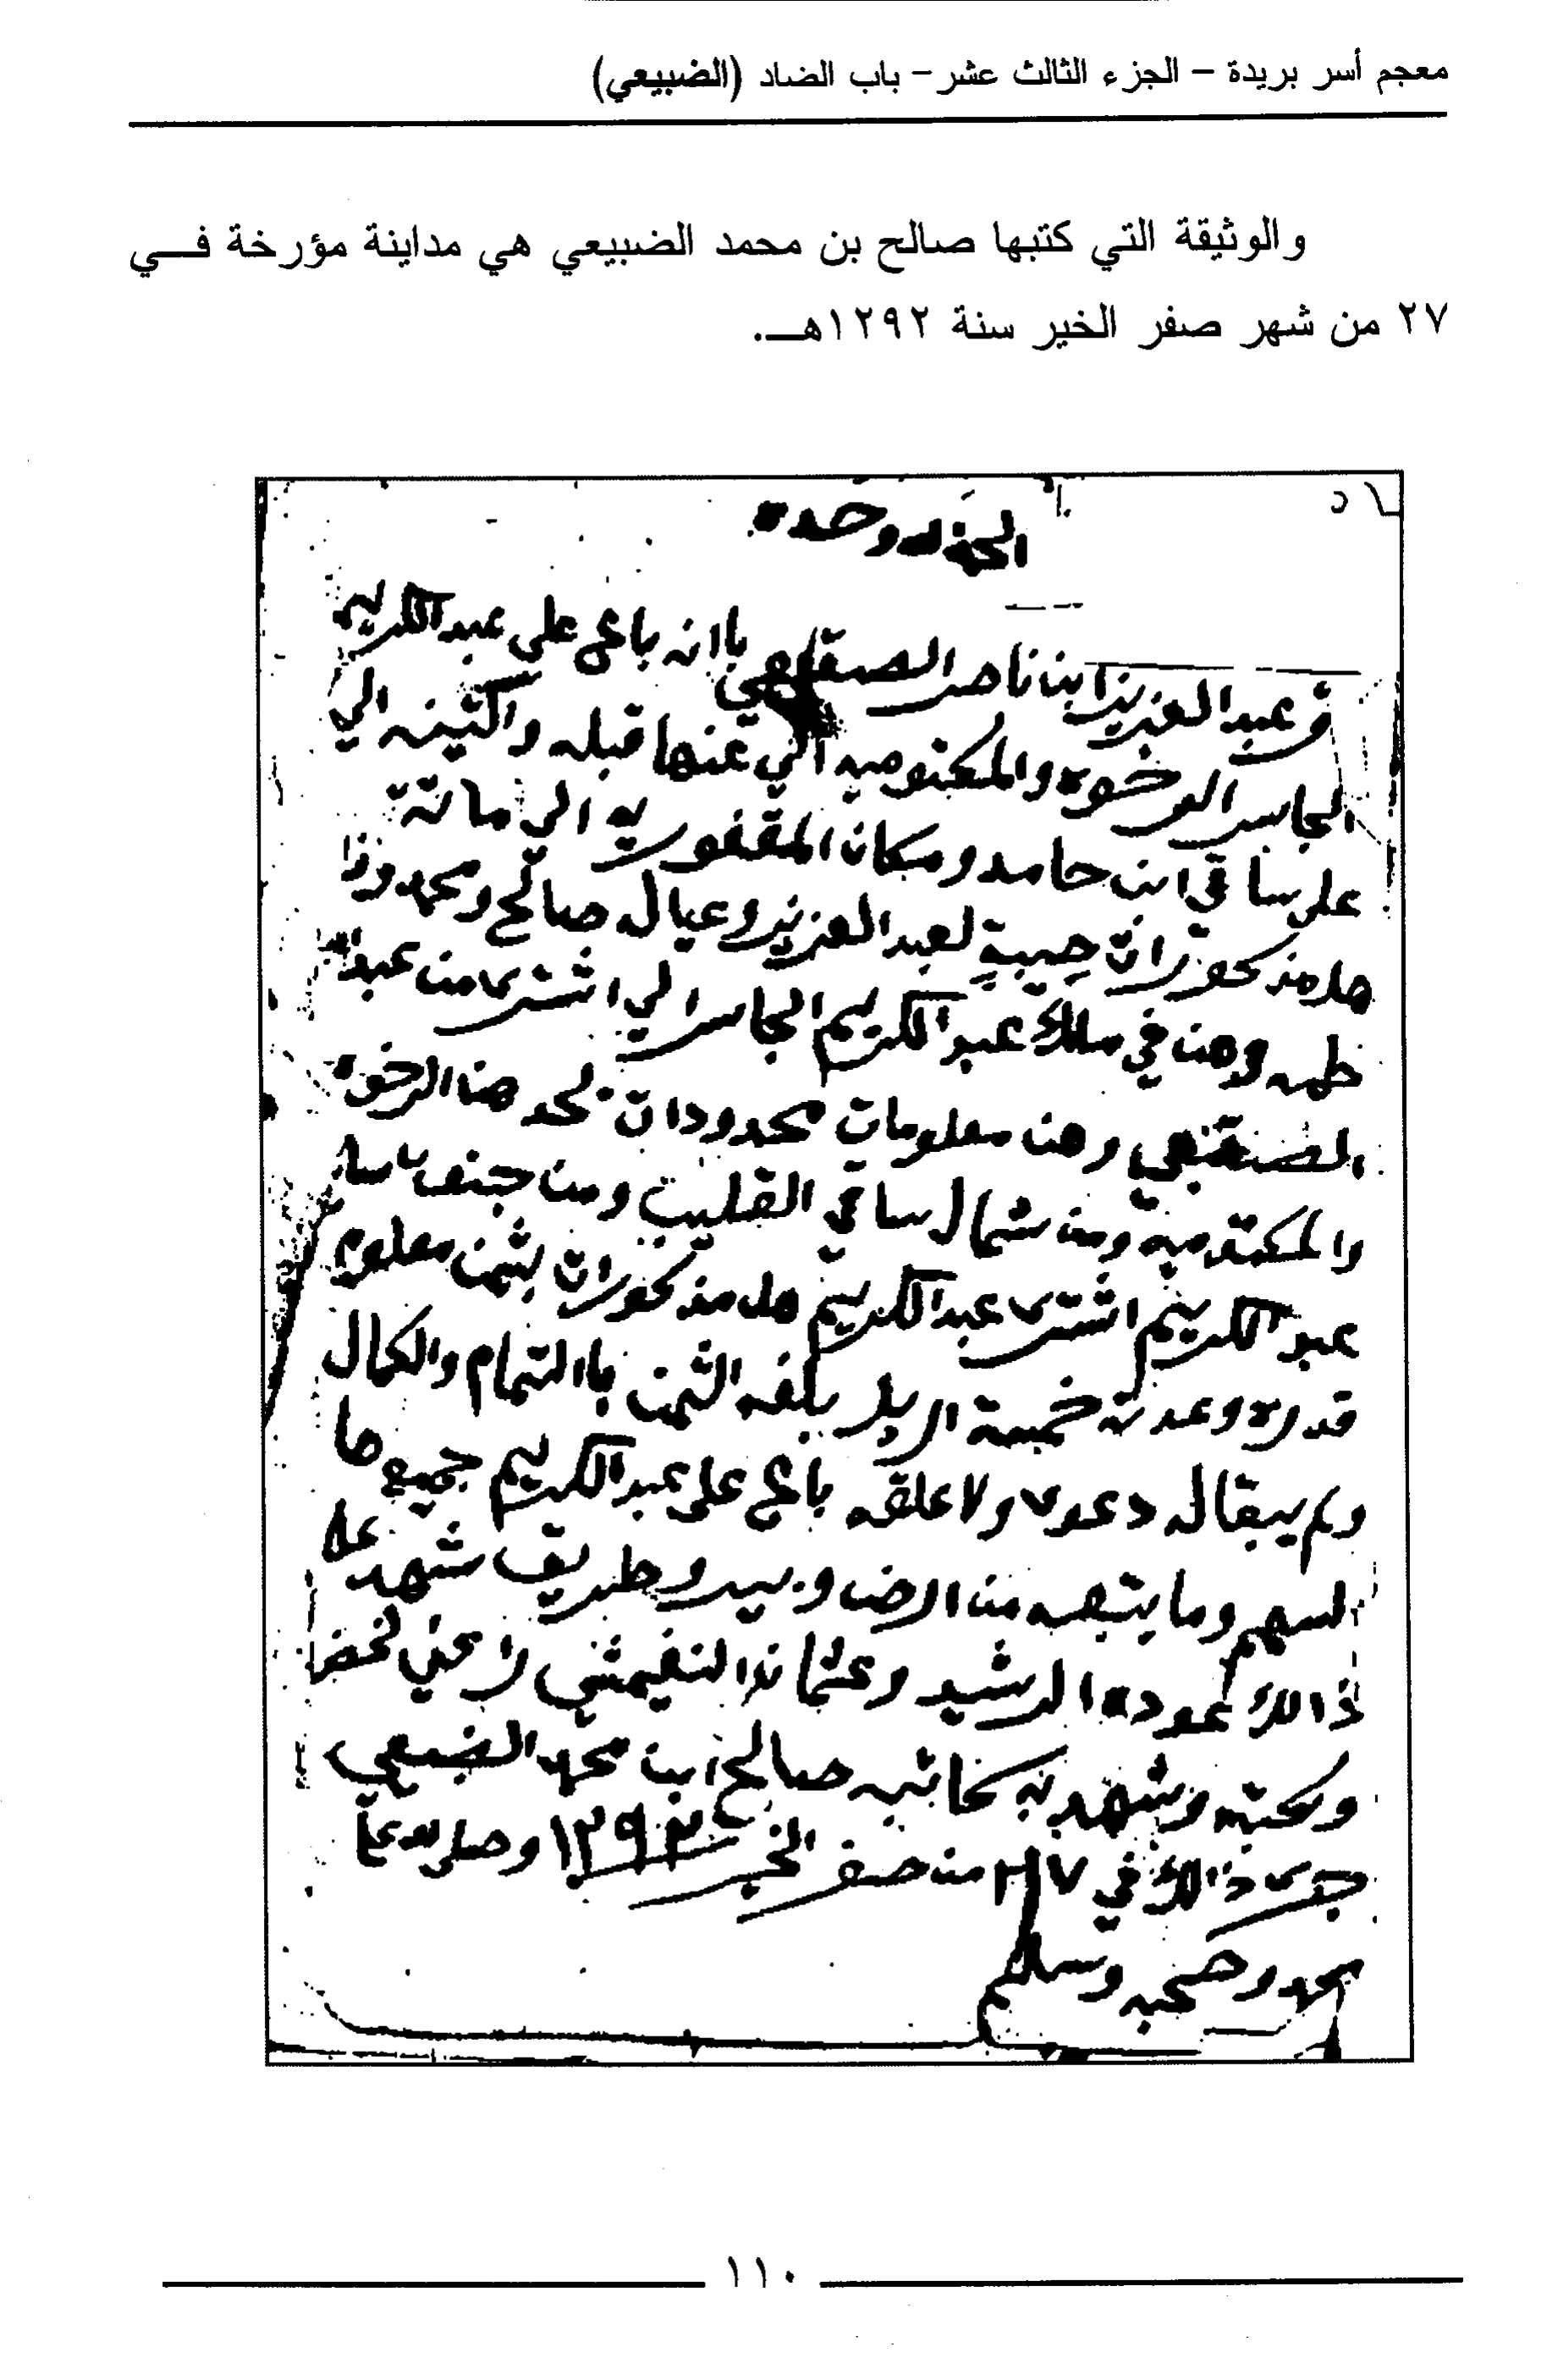 معجم أسر بريدة – الجزء الثالث عشر – باب الضاد (الضبيعي)
والوثيقة التي كتبها صالح بن محمد الضبيعي هي مداينة مؤرخة فـــي
٢٧ من شهر صفر الخير سنة ١٢٩٢هـــ.
الحمد لله وحده
عبد العزيز ابن ناصر الصقعبي باانه باع على عبد الكريم
الجاسر الرخوه والمكتوميه الي عنها قبله والثينه الي
على ساقي ابن حامد ومكان المقفوريه الي ماتت
هل مذكورات صيبة لعبد العزيز وعيال صالح ومحمد وذا
وهن في ملك عبد الكريم الجاسر الي اشترى من عبد الله
الصقعبي وهن معلومات محدودات يحد هنا الرخوه
والمكتوميه ومن شمال ساقي القليب ومن جنوب
عبد الكريم اشترى عبد الكريم هل مذكورات بثمن معلوم
قدره وعدته خمسة اريل بلغه الثمن باالتمام والكمال
ولم يبقاله دعوى ولا علقه باع على عبد الكريم جميع ها
لسهم وما يتبعه من ارض وبير وطريق شهد على
ذالك حموده الرشيد وعثمان النغيمشي
وكتبه وشهد به كاتبه صالح ابن محمد الضبيعي
جرى ذالك في ٢٧ من صفر الخير ١٢٩٢ وصلى الله على
محمد وصحبه وسلم
١١٠